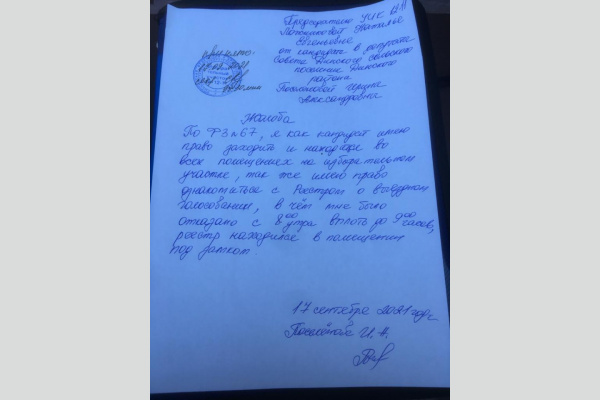 Председателю УИК
Наталье
Евгеньевне
от кандидата в депутаты
Совета Динского сельского
поселения Динского
района
Александровны
принято:
Жалоба
По ФЗ №67, я как кандидат имею
право заходить и находиться во
всех помещениях на избирательном
участке, так же имею право
ознакомиться с Реестром о выездном
голосовании, в чём мне было
отказано с 8:00 утра вплоть до 9:00 часов,
реестр находился в помещении
под замком.
17 сентября 2021 года
И. А.